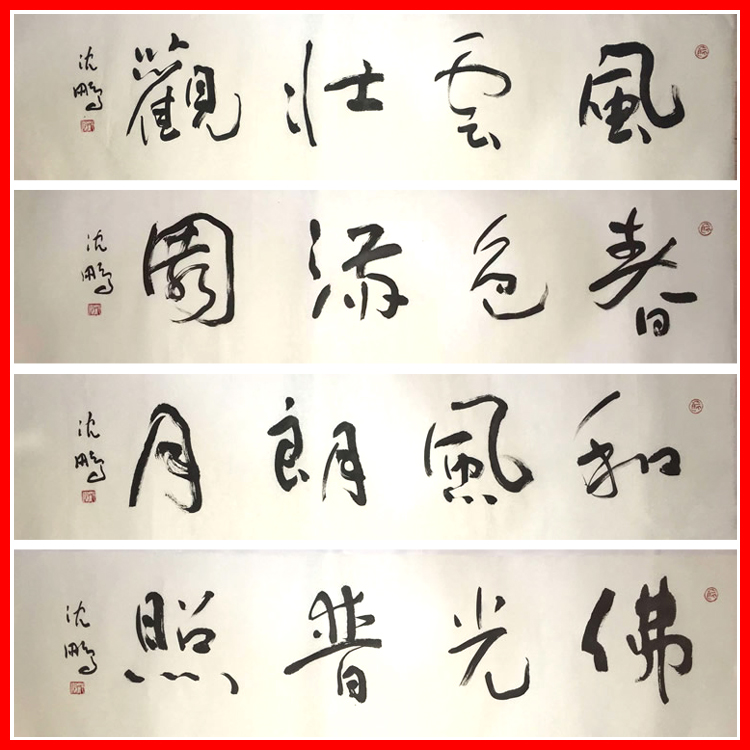 風雲壮觀 沈鵬
春色满園 沈鵬
和風朗月 沈鵬
佛光普照 沈鵬